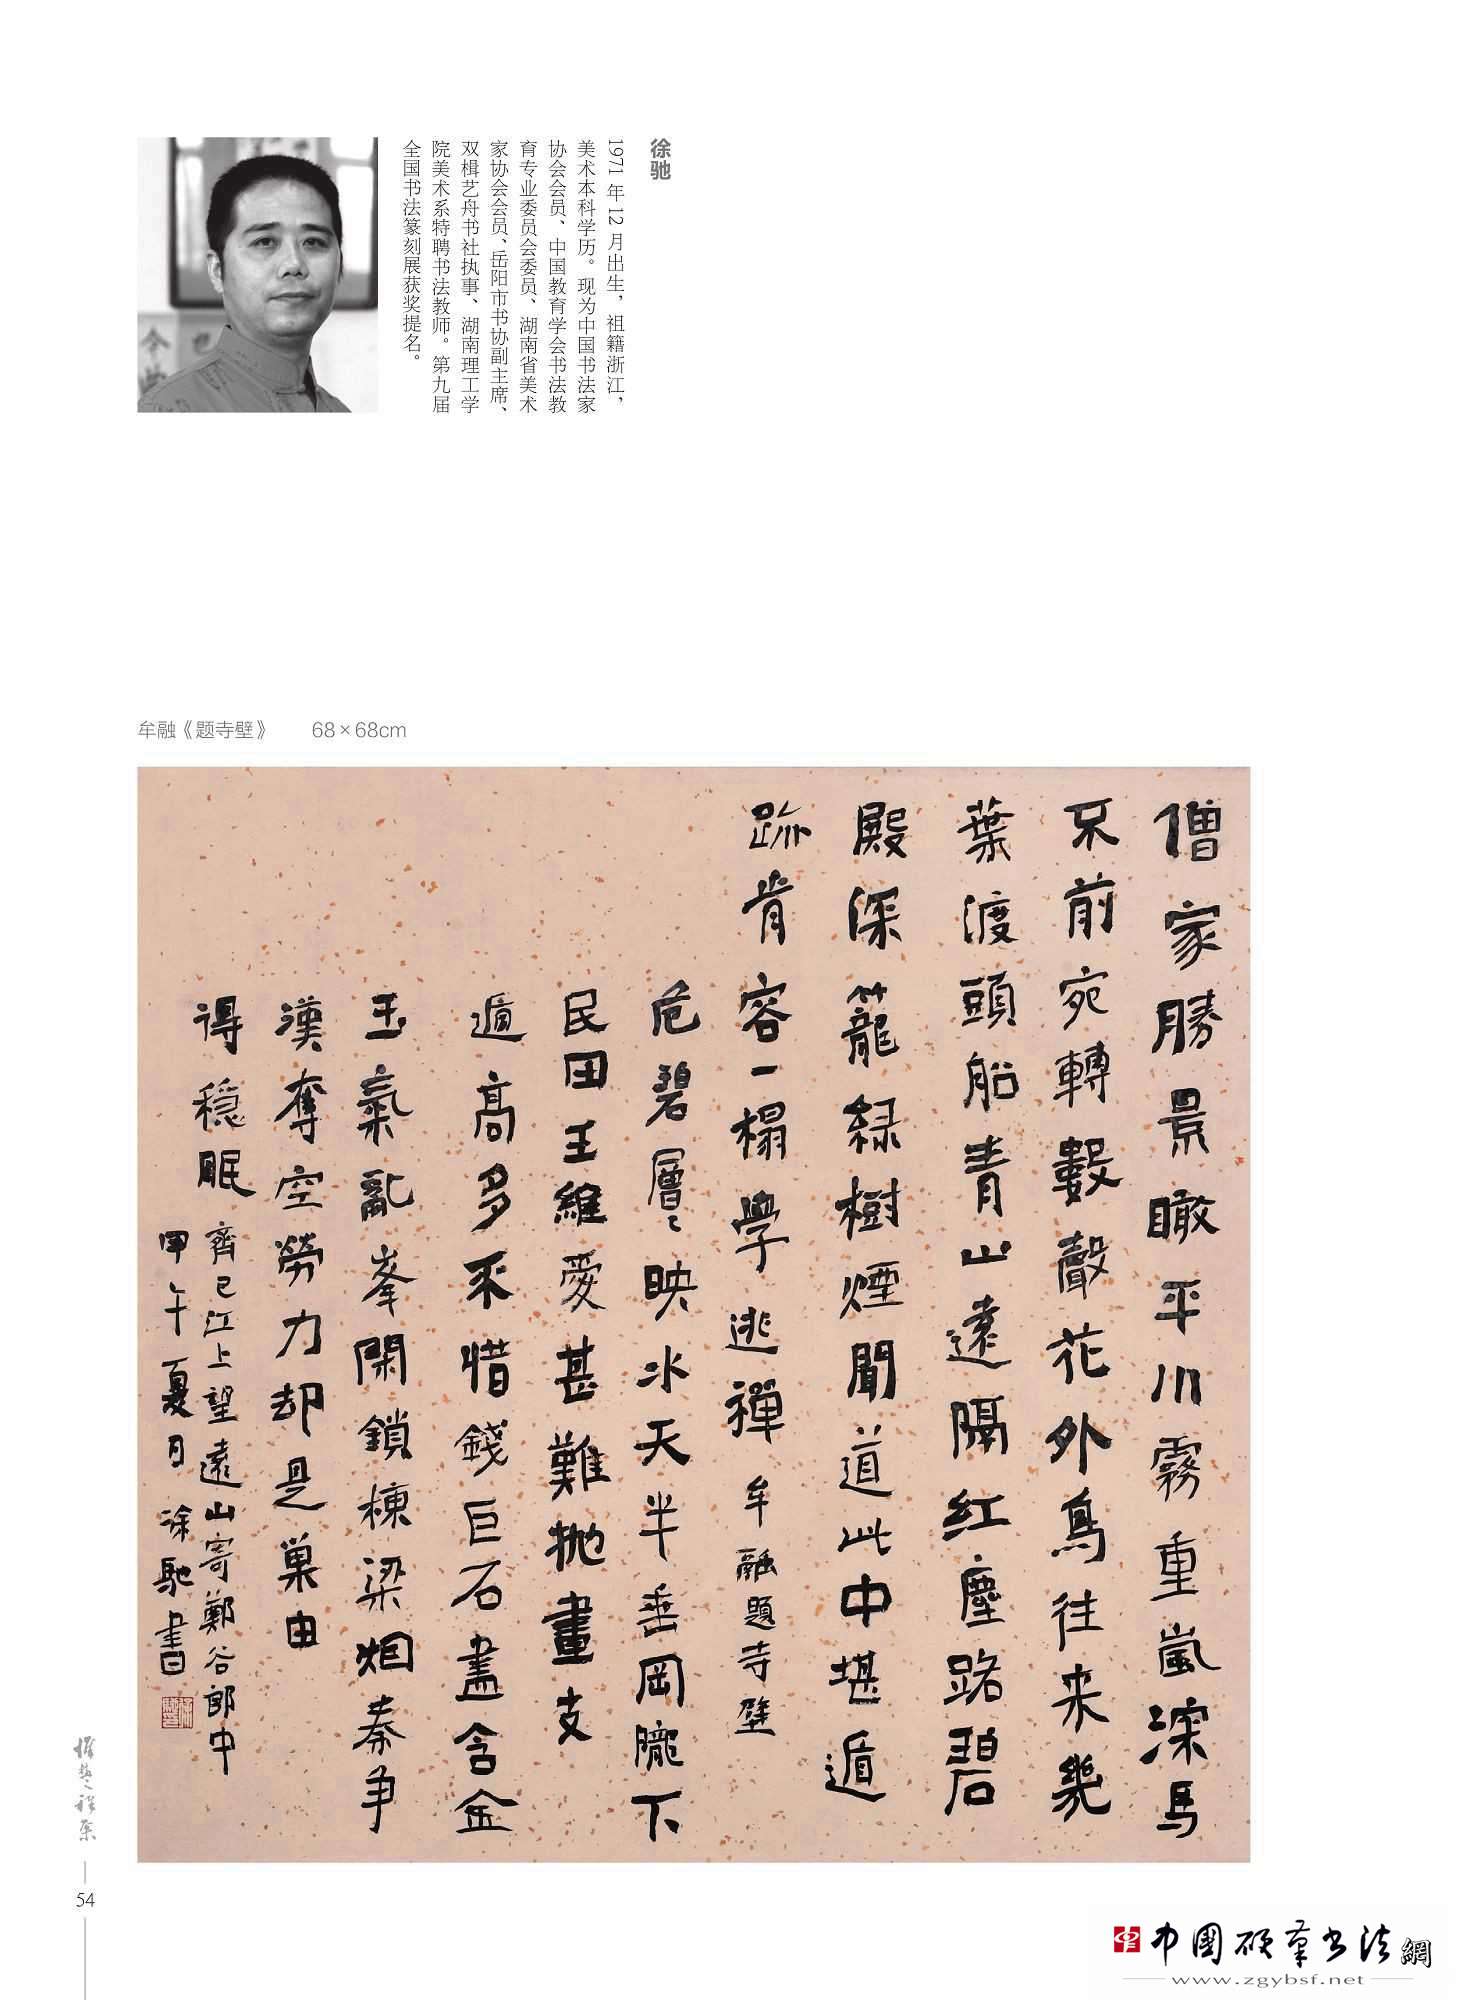 徐驰
1971 年 12 月出生，祖籍浙江，
美术本科学历。现为中国书法家
协会会员、中国教育学会书法教
育专业委员会委员、湖南省美术
家协会会员、岳阳市书协副主席、
双楫艺舟书社执事、湖南理工学
院美术系特聘书法教师。第九届
全国书法篆刻展获奖提名。
牟融《题寺壁》 68×68cm
僧家勝景瞰平川霧重嵐深馬
不前宛轉數聲花外鳥往来幾
葉渡頭船青山遠隔紅塵路碧
殿深籠緑樹煙聞道此中堪遁
跡肯容一榻學逃禪 牟融題寺壁
危碧層〻映水天半垂岡隴下
民田王維愛甚難抛畫支
遁高多不惜錢巨石盡含金
玉氣亂峯閑鎖棟梁烟秦争
漢奪空勞力却是巢由
得穩眠 齊己江上望遠山寄鄭谷郎中
甲午夏月徐馳書
54
中国硬筆书法網
www.zgybsf.net